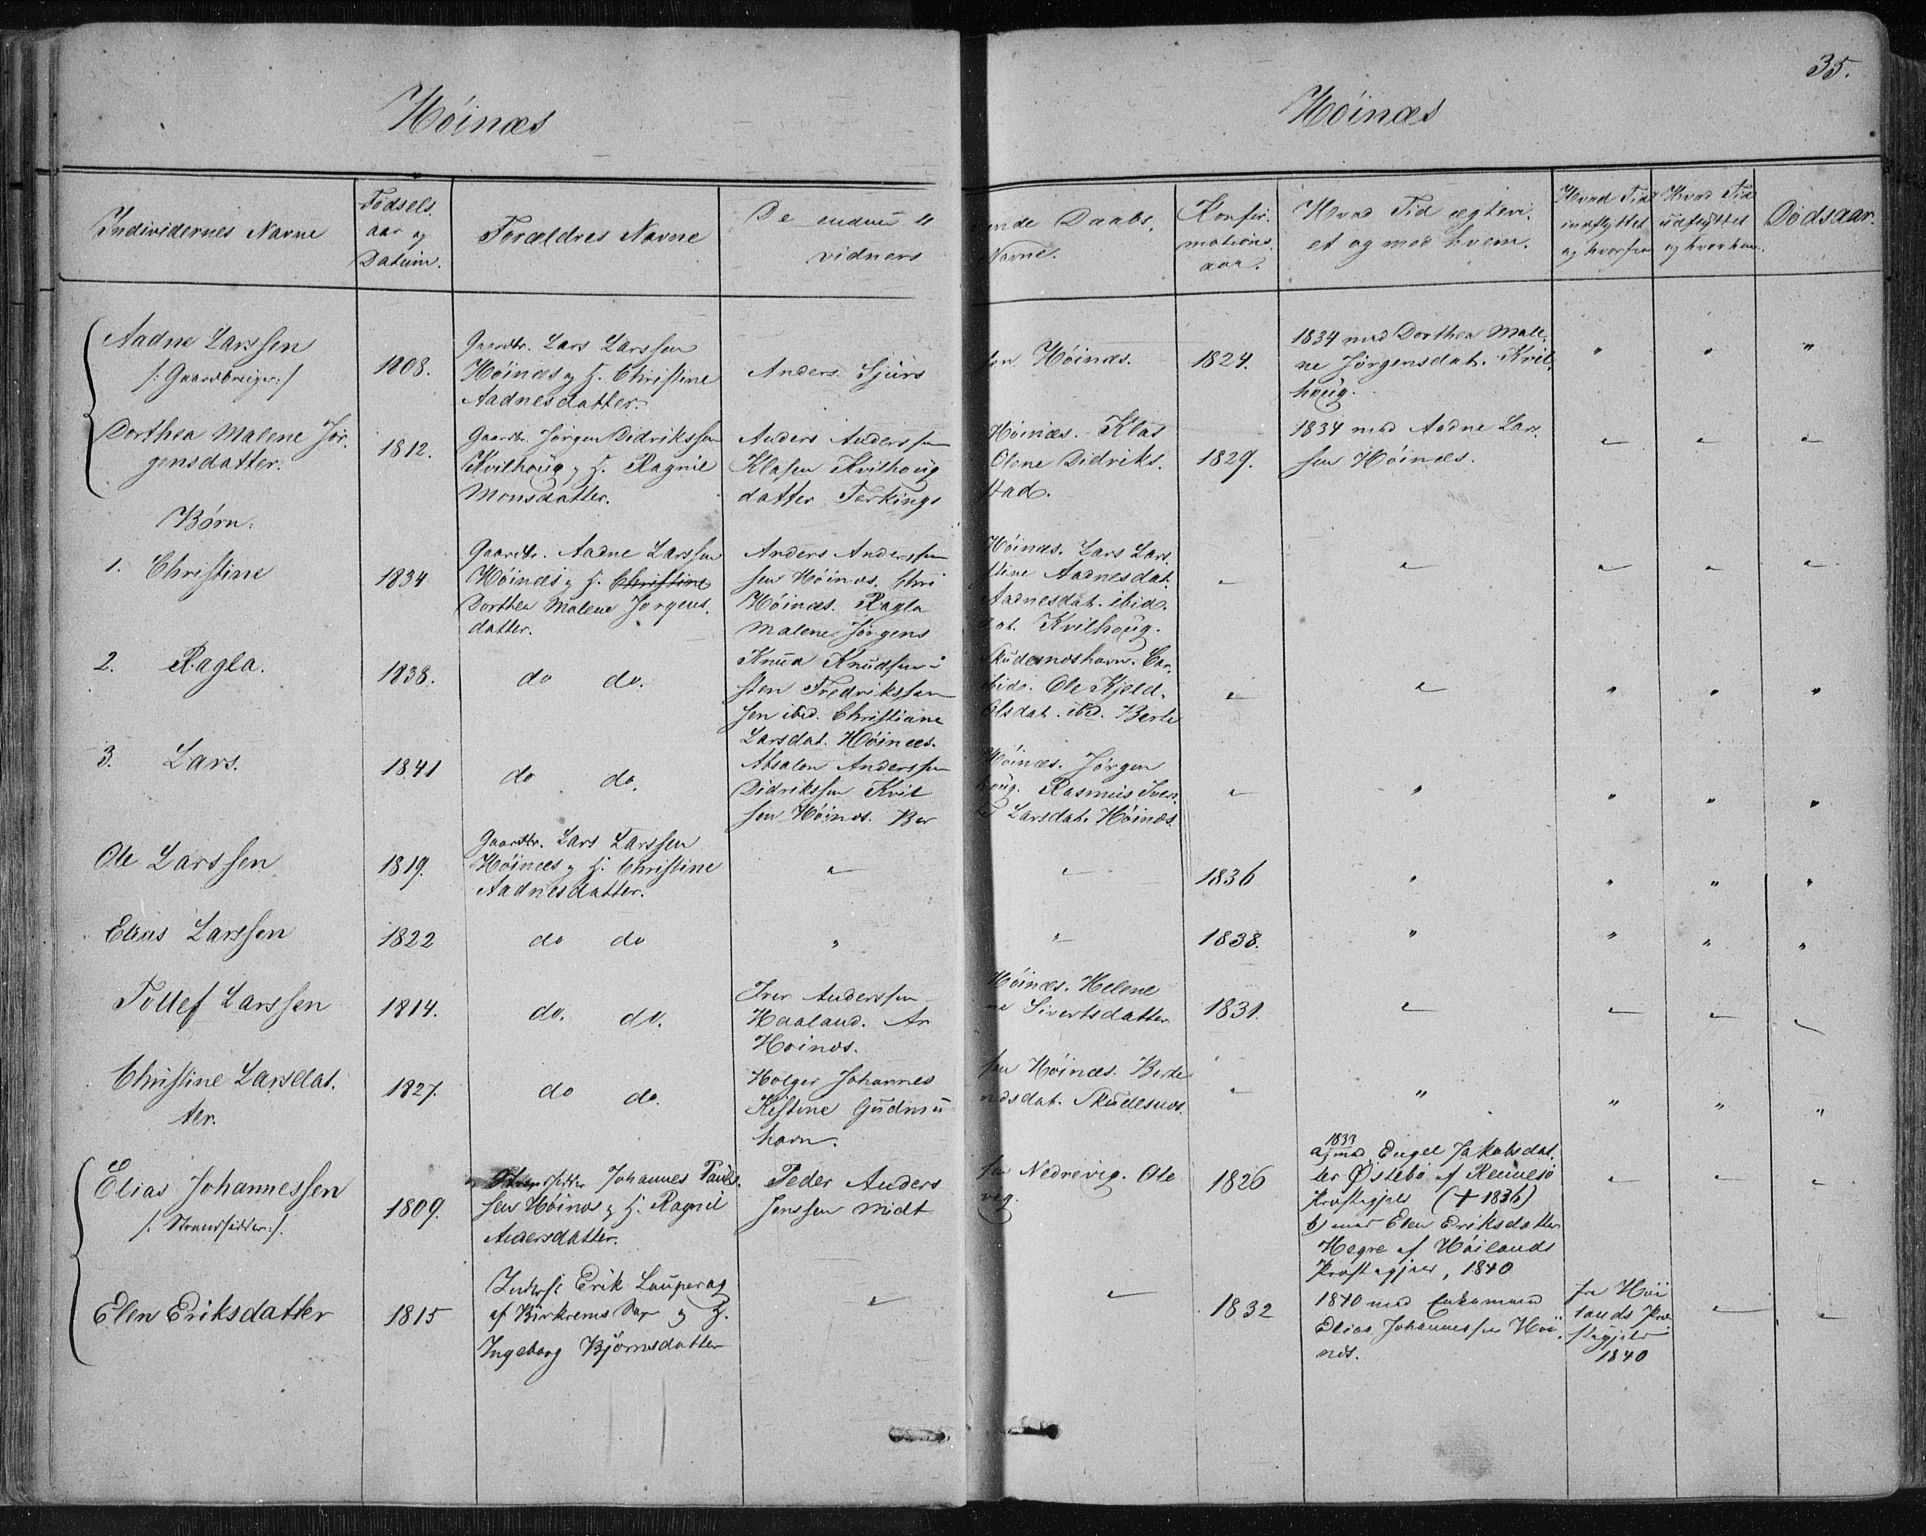 35.
Höinæs
Höinæs
Individernes Navne
Födsels
aar og
Datum.
Forældres Navne
De endnu le
vidners
vende Daabs,
Navne.
Konfir.
mations
aar.
Hvad Tid ægtevi,
et og med hvem.
Hvad Tid
indflyttet
og hvorfra
Hvad Tid
udflyttet
og hvorhen
Dödsaar.
Aadne Larssen
/: Gaardbruger :/
1808.
Gaardbr. Lars Larssen
Höinæs og H. Christine
Aadnesdatter.
Anders Sjurs
sen Höinæs.
1824.
1834 med Dorthea Male,
ne Jörgensdat. Kvil,
houg.
" " "
Dorthea Malene Jör,
gensdatter.
1812.
Gaardbr. Jörgen Didrikssen
Kvilhoug og H. Ragnil
Monsdatter.
Anders Anderssen
Klasen Kvilhoug
datter Ferkings
Höinæs. Klas
Olene Didriks.
stad.
1829.
1834 med Aadne Lar,
sen Höinæs.
" " "
Börn:
1. Christine
1834
Gaardbr. Aadne Larssen
Höinæs og H. Christine
Dorthea Malene Jörgens,
datter.
Anders Anderssen
sen Höinæs. Chri
Höinæs. Ragla
Malene Jörgens
Höinæs. Lars Lars
stine Aadnesdat.
Aadnesdat. ibid.
dat. Kvilhoug.
" " " " "
2. Ragla.
1838.
do do.
Knud Knudsen i
sten Fredrikssen
sen ibid. Christiane
Larsdat. Höinæs.
Skudesnæshavn. Car,
ibid. Ole Kjeld,
Olsdat. ibd. Berte
" " " " "
3. Lars.
1841
do do.
Absalon Anderssen
Didrikssen Kvil
sen Höinæs. Ber
Höinæs. Jörgen
houg. Rasmus Iver,
te Larsdat. Höinæs.
" " " " "
Ole Larssen
1819.
Gaardbr. Lars Larssen
Höinæs og H. Christine
Aadnesdatter.
" "
1836
" " " "
Elias Larssen
1822
do do
" "
1838.
" " " "
Tollef Larssen
1814.
do. do.
Iver Anderssen
Haaland. An
Höinæs.
Höinæs. Helene
ne Sivertsdatter
1831.
" " " "
Christine Larsdat.
ter.
1827.
do do.
Holger Johannes
Kistine Gudmu
havn.
sen Höinæs. Berte
ndsdat. Skudesnæs.
" " " " "
Elias Johannessen
/: Strandsidder :/.
1809.
Strandsidder Johannes Pauls.
sen Höinæs og H. Ragnil
Andersdatter.
Peder Anders
Jenssen Midt
sen Nedrevig. Ole
vig.
1826
1833
a) med Engel Jakobsdat,
ter Östebö af Rennesö
Præstegjeld (✝ 1836)
b) med Elen Eriksdatter
Hegre af Höilands
Præstegjeld, 1840
" " "
Elen Eriksdatter
1815
Inderst Erik
af Birkrems og H.
Ingeborg Björnsdatter
" "
1832
1840 med Enkemand
Elias Johannessen Höi,
næs.
fra Höi
lands Præ
stegjeld
1840
" "